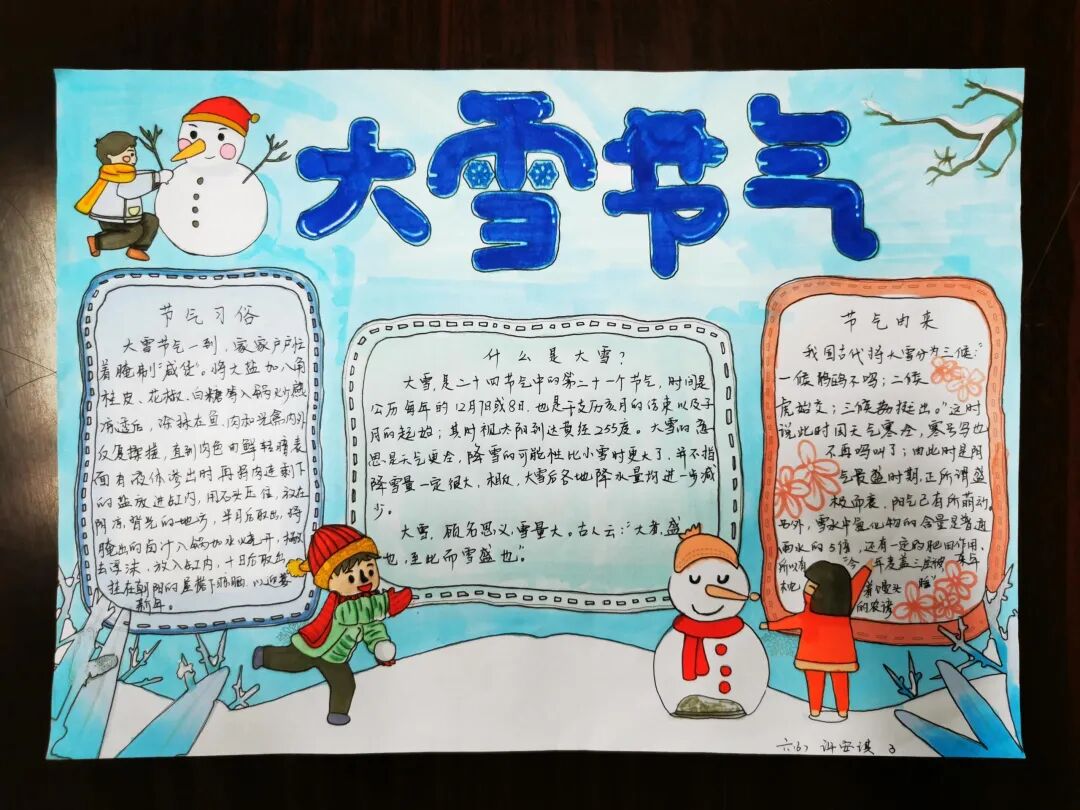 大雪节气
节气习俗
大雪节气一到，家家户户忙
着腌制"咸货"。将大盐加八角
桂皮、花椒、白糖等入锅炒熟
凉透后，涂抹在鱼、肉和光禽内外
反复揉搓，直到肉色由鲜转暗表
面有液体渗出时再将肉连剩下
的盐放进缸内，用石头压住，放在
阴凉背光的地方，半月后取出，将
腌出的卤汁入锅加水烧开，撇
去浮沫，放入缸内，十日后取出，
挂在朝阳的屋檐下晾晒，以迎接
新年。
什么是大雪？
大雪，是二十四节气中的第二十一个节气，时间是
公历每年的12月7日或8日，也是干支历亥月的结束以及子
月的起始；其时视太阳到达黄经255度。大雪的意
思是天气更冷，降雪的可能性比小雪时更大了，并不指
降雪量一定很大，相反，大雪后各地降水量均进一步减
少。
大雪，顾名思义，雪量大。古人云："大者，盛
也，至此而雪盛也"。
节气由来
我国古代将大雪分为三候："
一候鹖鴠不鸣；二候
虎始交；三候荔挺出。"这时
说此时因天气寒冷，寒号鸟也
不再鸣叫了；由此时是阴
气最盛时期，正所谓盛
极而衰，阳气已有所萌动。
另外，雪水中氮化物的含量是普通
雨水的5倍，还有一定的肥田作用，
所以有"今年麦盖三层被，来年
枕着馒头睡"
的农谚